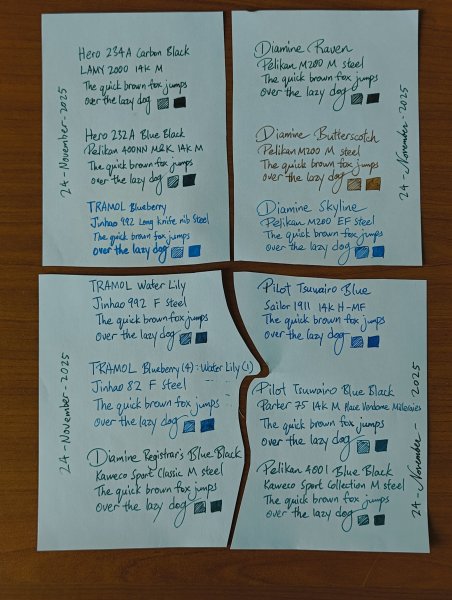 24-November-2025
Hero 234A Carbon Black
LAMY 2000 14K M
The quick brown fox jumps
over the lazy dog
Hero 232A Blue Black
Pelikan 400NN M&K 14K M
The quick brown fox jumps
over the lazy dog
TRAMOL Blueberry
Jinhao 992 Long knife nib Steel
The quick brown fox jumps
over the lazy dog
Diamine Raven
Pelikan M200 M steel
The quick brown fox jumps
over the lazy dog
Diamine Butterscotch
Pelikan M200 M steel
The quick brown fox jumps
over the lazy dog
Diamine Skyline
Pelikan M200 EF Steel
The quick brown fox jumps
over the lazy dog
24-November-2025
24-November-2025
TRAMOL Water Lily
Jinhao 992 F Steel
The quick brown fox jumps
over the lazy dog
TRAMOL Blueberry (4): Water Lily (1)
Jinhao 82 F Steel
The quick brown fox jumps
over the lazy dog
Diamine Registrar's Blue Black
Kaweco Sport Classic M steel
The quick brown fox jumps
over the lazy dog
Pilot Tsuwairo Blue
Sailor 1911 14K H-MF
The quick brown fox jumps
over the lazy dog
Pilot Tsuwairo Blue Black
Parker 75 14K M Place Vendome
The quick brown fox jumps
over the lazy dog
Pelikan 4001 Blue Black
Kaweco Sport Collection M steel
The quick brown fox jumps
over the lazy dog
24-November-2025